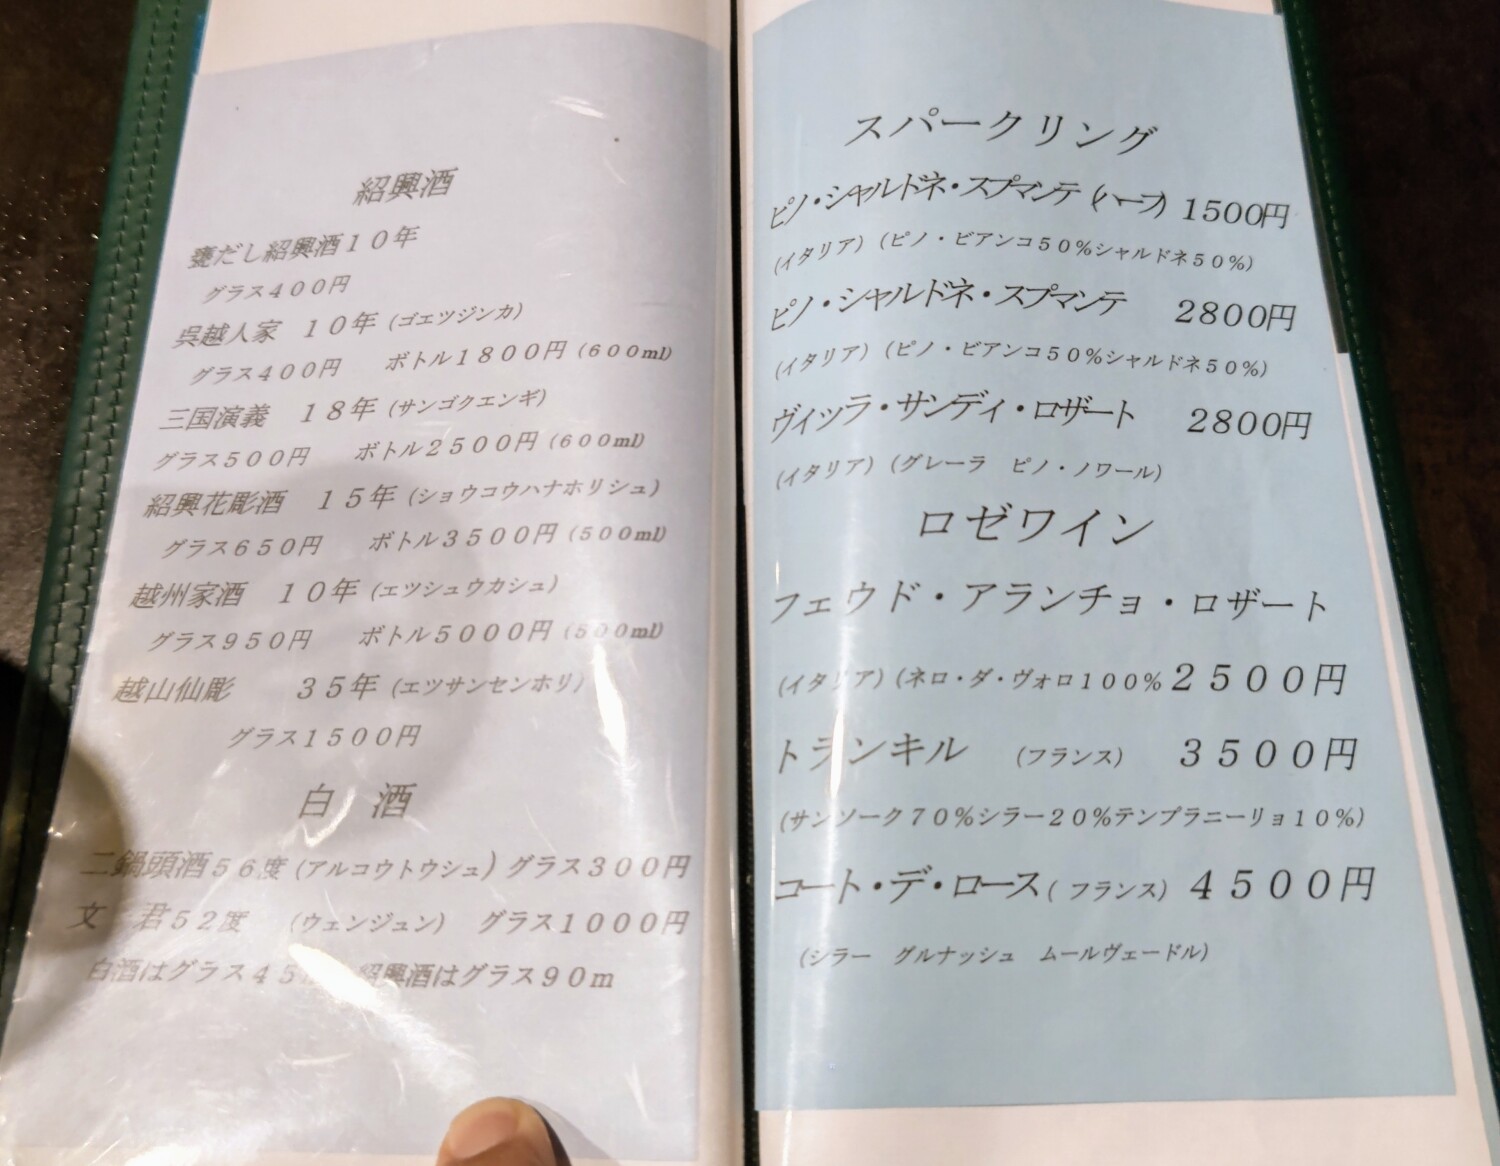 紹興酒
甕だし紹興酒１０年
グラス４００円
呉越人家　１０年（ゴエツジンカ）
グラス４００円　ボトル１８００円（６００ml）
三国演義　１８年（サンゴクエンギ）
グラス５００円　ボトル２５００円（６００ml）
紹興花彫酒　１５年（ショウコウハナホリシュ）
グラス６５０円　ボトル３５００円（５００ml）
越州家酒　１０年（エツシュウカシュ）
グラス９５０円　ボトル５０００円（５００ml）
越山仙彫　３５年（エツサンセンホリ）
グラス１５００円
白　酒
二鍋頭酒５６度（アルコウトウシュ）グラス３００円
文　君５２度　（ウェンジュン）　グラス１０００円
白酒はグラス４５　紹興酒はグラス９０ｍ
スパークリング
ピノ・シャルドネ・スプマンテ（ハーフ）1500円
（イタリア）（ピノ・ビアンコ５０％シャルドネ５０％）
ピノ・シャルドネ・スプマンテ　2800円
（イタリア）（ピノ・ビアンコ５０％シャルドネ５０％）
ヴィツラ・サンディ・ロザート　2800円
（イタリア）（グレーラ　ピノ・ノワール）
ロゼワイン
フェウド・アランチョ・ロザート
（イタリア）（ネロ・ダ・ヴォロ１００％２５００円
トランキル　（フランス）　３５００円
（サンソーク７０％シラー２０％テンプラニーリョ１０％）
コート・デ・ロース（フランス）４５００円
（シラー　グルナッシュ　ムールヴェードル）